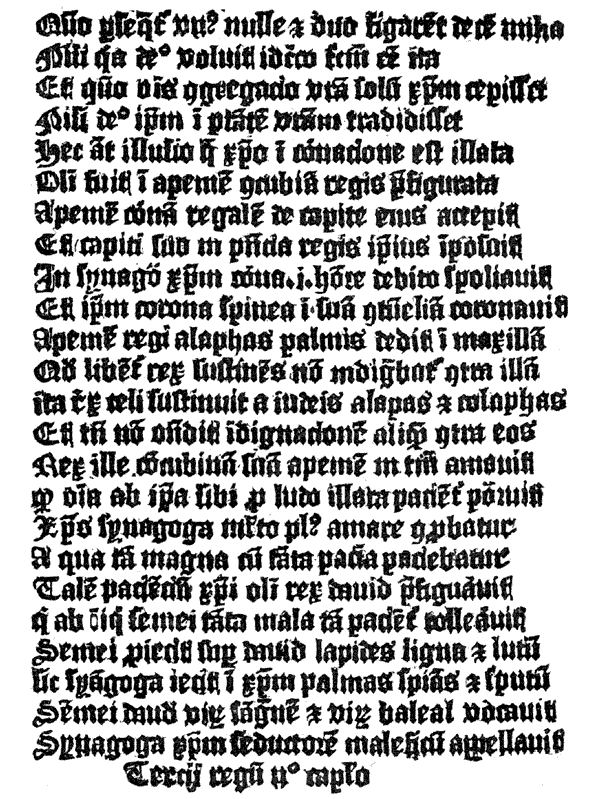 Quō ꝑseq̄t̄ vnꝰ mille ⁊ duo fūgarēt decē milia
Nisi q̄a deꝰ voluit idcō fcm̄ ē ita
Et quō oīs ꝯgregacio vr̄a solū xp̄m cepisset
Nisi deꝰ ip̄m ī ptātē vr̄am tradidisset
Hec āt illusio q̄ xp̄o ī coronacione est illata
Olī fuit ī apemē ꝯcubīa regis p̄figurata
Apemē coronā regalē de capite eius accepit
Et capiti suo in pn̄cia regis ip̄ius īposuit
In synagō xp̄m corona .i. hōre debito spoliauit
Et ip̄m corona spinea ī suā ꝯtūeliā coronauit
Apemē regi alaphas palmis dedit ī maxillā
Qd̄ libēt̄ rex sustinēs nō indign̄bat̄ ꝯtra illā
ita r̄x celi sustinuit a iudeis alapas ⁊ colaphos
Et tn̄ nō on̄dit īdignacionē aliq̄ ꝯtra eos
Rex ille ꝯcubinā suā apemē in tm̄ amauit
ꝙ oīa ab ip̄a sibi ꝓ ludo illata paciēt̄ portauit
Xp̄s synagoga ml̄to plꝰ amare ꝯꝓbatur
A qua tā magna cū tāta paciā paciebatur
Talē paciēciā xp̄i olī rex dauid p̄figurauit
q̄ ab īiq̄ semei tāta mala tā paciēt̄ tolleauit
Semei ꝓiecit suꝑ dauid lapides ligna ⁊ lutū
sic synagoga iecit ī xp̄m palmas spīas ⁊ sputū
Sēmei dauid virū sāgnē ⁊ virū belial vocauit
Synagoga xp̄m seductorē maleficū appellauit
Tercij regū ijº caplo